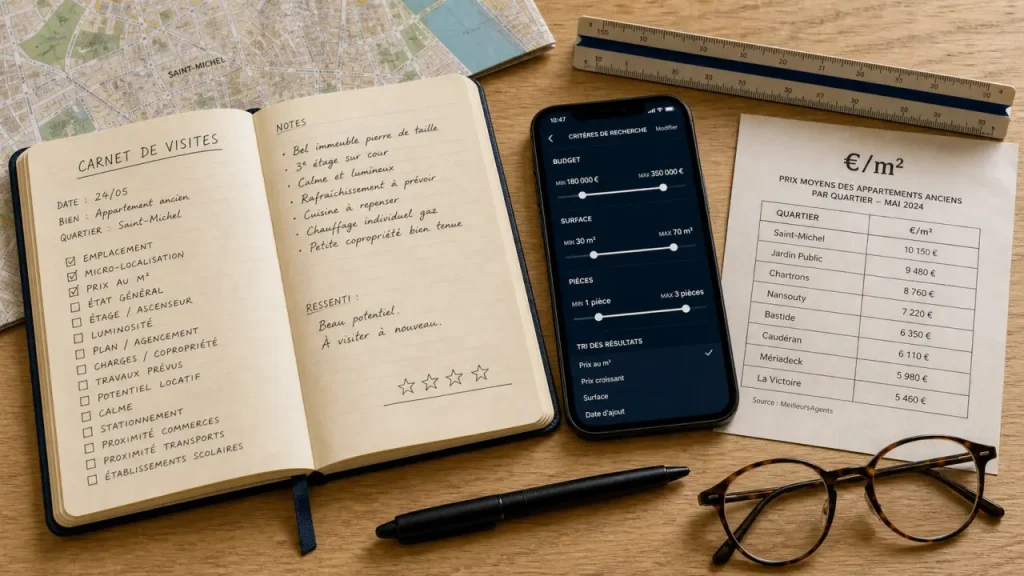 SAINT-MICHEL
CARNET DE VISITES
DATE : 24/05
BIEN : Appartement ancien
QUARTIER : Saint-Michel
EMPLACEMENT
MICRO-LOCALISATION
PRIX AU M²
ÉTAT GÉNÉRAL
ÉTAGE / ASCENSEUR
LUMINOSITÉ
PLAN / AGENCEMENT
CHARGES / COPROPRIÉTÉ
TRAVAUX PRÉVUS
POTENTIEL LOCATIF
CALME
STATIONNEMENT
PROXIMITÉ COMMERCES
PROXIMITÉ TRANSPORTS
ÉTABLISSEMENTS SCOLAIRES
NOTES
• Bel immeuble pierre de taille
• 3e étage sur cour
• Calme et lumineux
• Rafraîchissement à prévoir
• Cuisine à repenser
• Chauffage individuel gaz
• Petite copropriété bien tenue
RESSENTI :
Beau potentiel.
À visiter à nouveau.
10:47
CRITÈRES DE RECHERCHE Modifier
BUDGET
MIN 180 000 € MAX 350 000 €
SURFACE
MIN 30 m² MAX 70 m²
PIÈCES
MIN 1 pièce MAX 3 pièces
TRI DES RÉSULTATS
Prix au m²
Prix croissant
Surface
Date d'ajout
€/m²
PRIX MOYENS DES APPARTEMENTS ANCIENS
PAR QUARTIER – MAI 2024
QUARTIER €/m²
Saint-Michel 10 150 €
Jardin Public 9 480 €
Chartrons 8 760 €
Nansouty 7 220 €
Bastide 6 350 €
Caudéran 6 110 €
Mériadeck 5 980 €
La Victoire 5 460 €
Source : MeilleursAgents